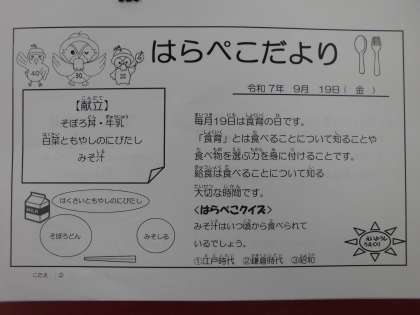 はらぺこだより
令和7年 9月 19日( 金 )
【献立】
そぼろ丼・牛乳
白菜ともやしのにびたし
みそ汁
毎月19日は食育の日です。
「食育」とは食べることについて知ることや
食べ物を選ぶ力を身に付けることです。
給食は食べることについて知る
大切な時間です。
<はらぺこクイズ>
みそ汁はいつ頃から食べられて
いるでしょう。
①江戸時代 ②鎌倉時代 ③昭和
はくさいともやしのにびたし
MILK
そぼろどん
みそしる
こたえ ②